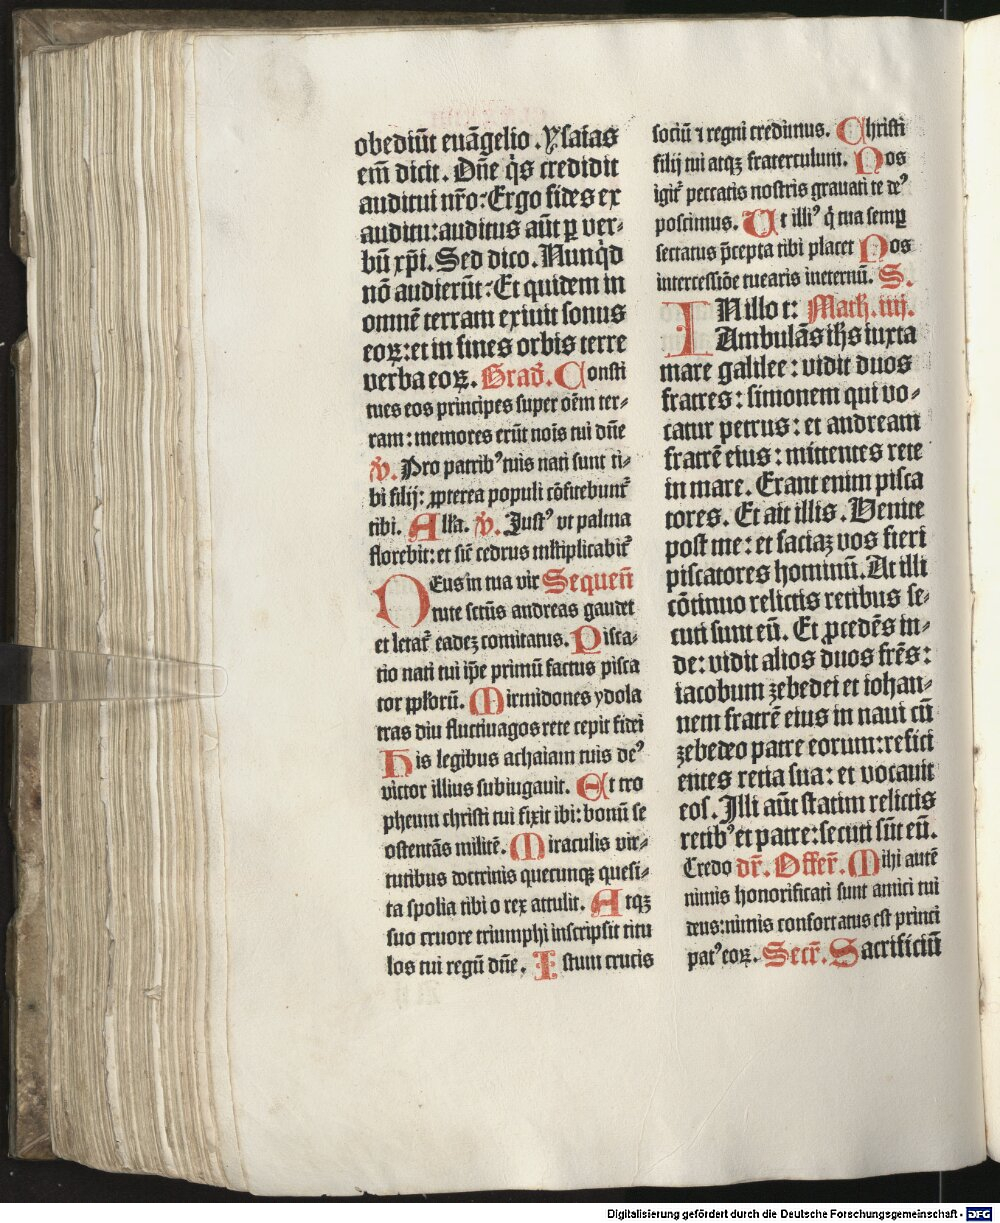 obediūt euāgelio. Ysaias
em̄ dicit. Dn̄e q̇s credidit
auditui nr̄o: Ergo fides ex
auditu: auditus aūt ꝑ ver-
bū xp̄i. Sed dico. Nunq̇d
nō audierūt: Et quidem in
omnē terram exiuit sonus
eoꝝ: et in fines orbis terre
verba eoꝝ. Grad̄. Consti
tues eos principes super oēm ter-
ram: memores erūt noīs tui dn̄e
v̄. Pro patribꝰ tuis nati sunt ti-
bi filij: ꝓpterea populi cōfitebunt᷑
tibi. All'a. v̄. Justꝰ vt palma
florebit: et sic̄ cedrus ml'tiplicabit᷑
DEus in tua vir Sequen̄
tute sctūs andreas gaudet
et letat᷑ eadeꝫ comitatus. Pisca-
tio nati tui ip̄e primū factus pisca
tor ppl'orū. Mirmidones ydola
tras diu fluctiuagos rete cepit fidei
His legibus achaiam tuis deꝰ
victor illius subiugauit. Et tro
pheum christi tui fixit ibi: bonū se
ostentās militē. Miraculis vir-
tutibus doctrinis quecunqꝫ quesi-
ta spolia tibi o rex attulit. Atqꝫ
suo cruore triumphi inscripsit titu
los tui regū dn̄e. Istum crucis
sociū ⁊ regni credimus. Christi
filij tui atqꝫ fraterculum. Nos
igit᷑ peccatis nostris grauati te deꝰ
poscimus. Ut illiꝰ q̄ tua semꝑ
sectatus p̄cepta tibi placet Nos
intercessiōe tuearis ineternū. S.
INillo t: Math. iiij.
Ambulās ih̄s iuxta
mare galilee: vidit duos
fratres: simonem qui vo-
catur petrus: et andream
fratrē eius: mittentes rete
in mare. Erant enim pisca
tores. Et ait illis. Venite
post me: et faciaꝫ vos fieri
piscatores hominū. At illi
cōtinuo relictis retibus se-
cuti sunt eū. Et ꝓcedēs in-
de: vidit alios duos frēs:
iacobum zebedei et iohan-
nem fratrē eius in naui cū
zebedeo patre eorum: refici
entes retia sua: et vocauit
eos. Illi aūt statim relictis
retibꝰ et patre: secuti sūt eū.
Credo dr̄. Offer̄. Mihi autē
nimis honorificati sunt amici tui
deus: nimis confortatus est princi
patꝰ eoꝝ. Secr̄. Sacrificiū
Digitalisierung gefördert durch die Deutsche Forschungsgemeinschaft - DFG